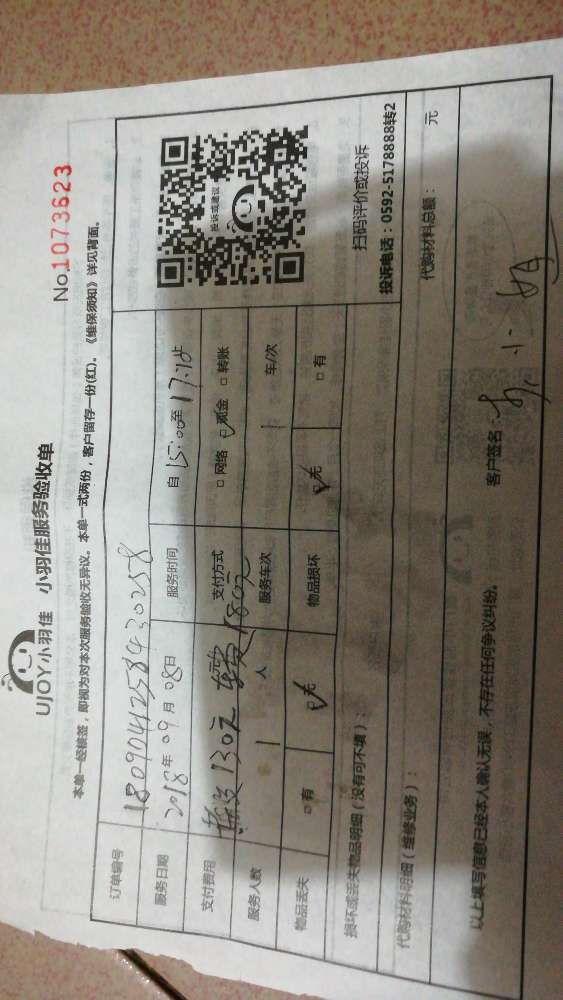 UJOY小羽佳 小羽佳服务验收单
No.1073623
本单一经核签，即视为对本次服务验收无异议。本单一式两份，客户留存一份(红)。《维保须知》详见背面。
订单编号 180904125843 0258
服务日期 2018年09月08日 服务时间 自15:00至17:10止
支付费用 130元 180元 支付方式 □网络 ☑现金 □转账
服务人数 1 人 服务车次 1 车/次
物品丢失 □有 ☑无 物品损坏 ☑无 □有
投诉或建议
扫码评价或投诉
投诉电话：0592-5178888转2
损坏或丢失物品明细（没有可不填）：
代购材料明细（维修业务）：
代购材料总额： 元
以上填写信息已经本人确认无误，不存在任何争议纠纷。 客户签名：